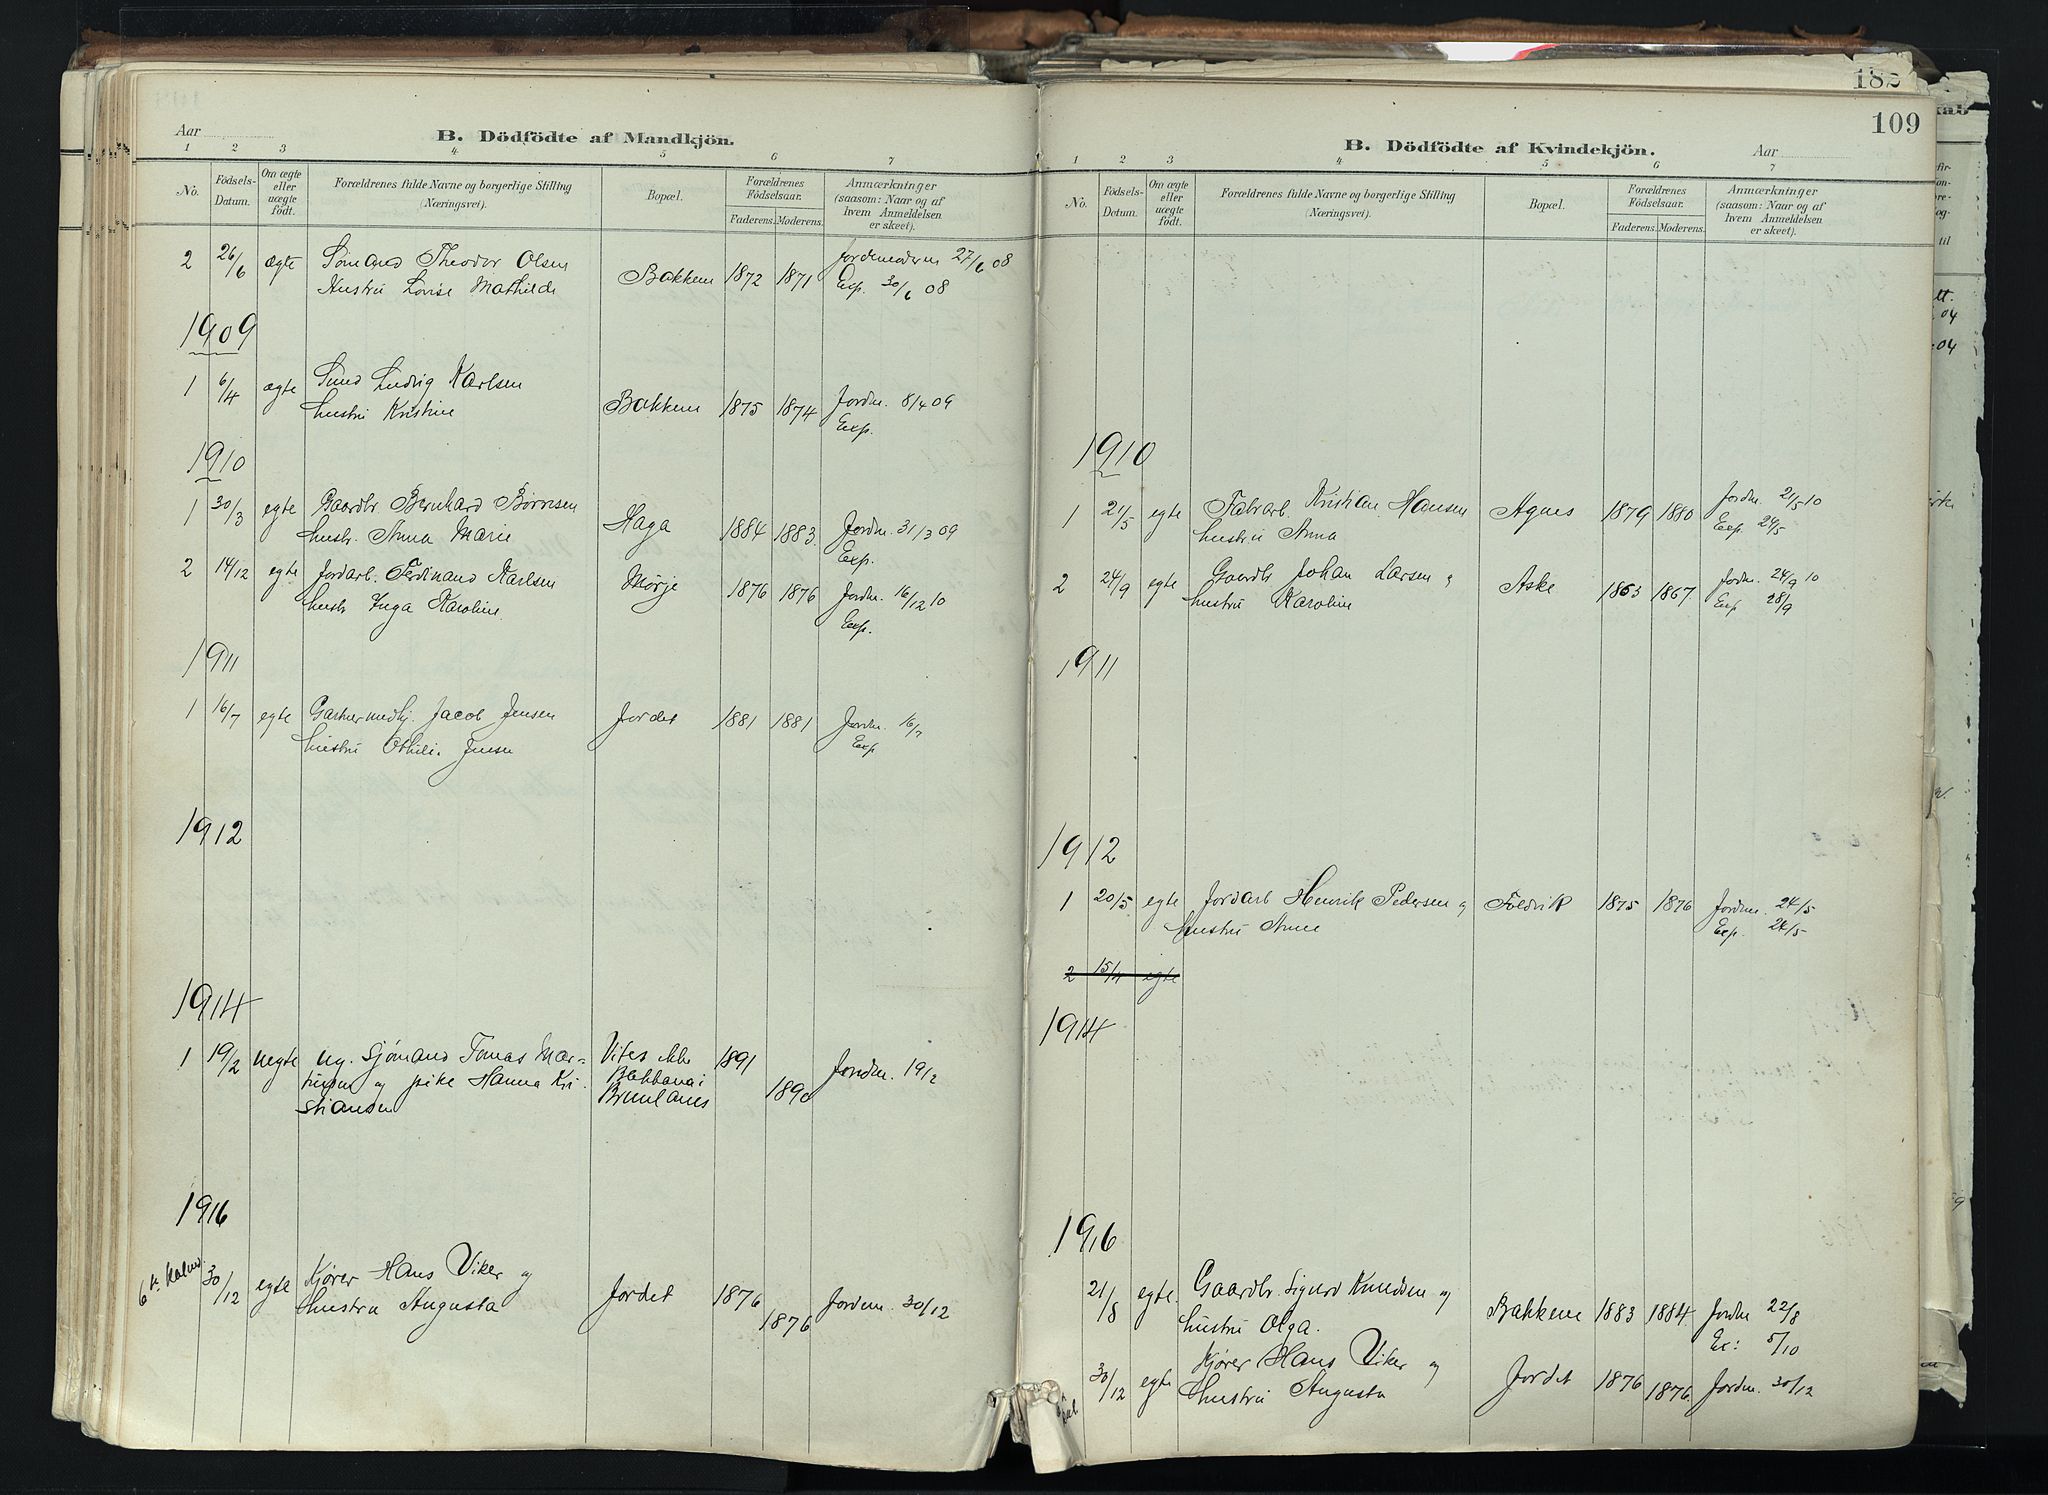 Aar
B. Dödfödte af Mandkjön.
1 2 3 4 5 6 7
No.
Födsels-Datum.
Om ægte eller uægte födt.
Forældrenes fulde Navne og borgerlige Stilling
(Næringsvei).
Bopæl.
Forældrenes Födselsaar.
Faderens. Moderens.
Anmærkninger
(saasom: Naar og af
hvem Anmeldelsen
er skeet).
2 26/6 ægte Sömand Theodor Olsen Bakkene 1872 1871 Jordemoderen 27/6 08
Hustru Lovise Mathilde Exp. 30/6 08
1909
1 6/4 ægte Smed Ludvig Karlsen
hustru Kristine Bakkene 1875 1874 Jordm. 8/4 09
Exp.
1910
1 30/3 egte Gaardbr. Bernhard Börresen
hustr. Anna Marie Haga 1884 1883. Jordm. 31/3 09
Exp.
2 14/12 egte Jordarb. Ferdinand Karlsen Mörje 1876 1876 Jordm. 16/12 10
hustr Inga Karoline. Exp.
1911
1 16/7 egte Gartnermedhj. Jacob Jensen Jordet 1881 1881 Jordm. 16/7
hustru Othili. Jensen Exp
1912
1914
1 19/2 uegte ug. Sjömand Tomas Mar- 1891 Jordm. 19/2
tinsen og pike Hanna Kri- Bakkene i 1890
stiansen Brunlanes
1916
6te kalvd. 30/12 egte Kjører Hans Viker og Jordet 1876 Jordem. 30/12
hustru Augusta 1876
182
109
B. Dödfödte af Kvindekjön.
Aar
1 2 3 4 5 6 7
No.
Födsels-Datum.
Om ægte eller uægte födt.
Forældrenes fulde Navne og borgerlige Stilling
(Næringsvei).
Bopæl.
Forældrenes Födselsaar.
Faderens. Moderens.
Anmærkninger
(saasom: Naar og af
hvem Anmeldelsen
er skeet).
1910
1 21/5 egte Fabrarb. Kristian Hansen Agnes 1879 1880 Jordm. 21/5 10
hustru Anna Exp. 24/5
2 24/9 egte Gaardbr Johan Larsen og Aske 1863 1867. Jordm. 24/9 10
hustru Karoline Exp 28/9
1911
1912
1 20/5 egte Jordarb Henrik Pedersen og Foldvik 1875 1876 Jordm. 24/5
hustru Anne Exp. 24/5
2 15/4 egte
1914
1916
21/8 egte. Gaardbr. Sigurd Knudsen og Bakkene 1883 1884. Jordm 22/8
hustru Olga. Ex: 5/10
30/12 egte Kjører Hans Viker og Jordet 1876 1876. Jordm. 30/12
hustru Augusta